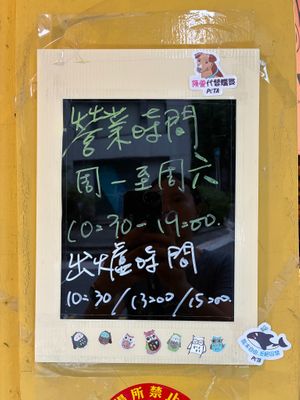 領養代替購買
PETA
營業時間
周一至周六
10:30-19:00.
出爐時間
10:30/13:00/15:00.
PETA
場所禁止